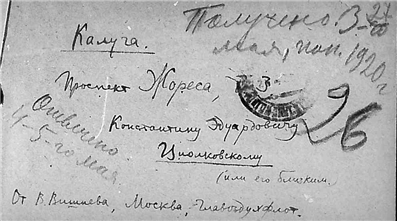 Получено 3-го
мая, пон. 1920 г
Калуга.
Проспект Жореса,
3
Константину Эдуардовичу
Циолковскому
(или его близким)
Отвечено
4-5-го мая
От В. Вишнева, Москва, Главвоздухфлот.